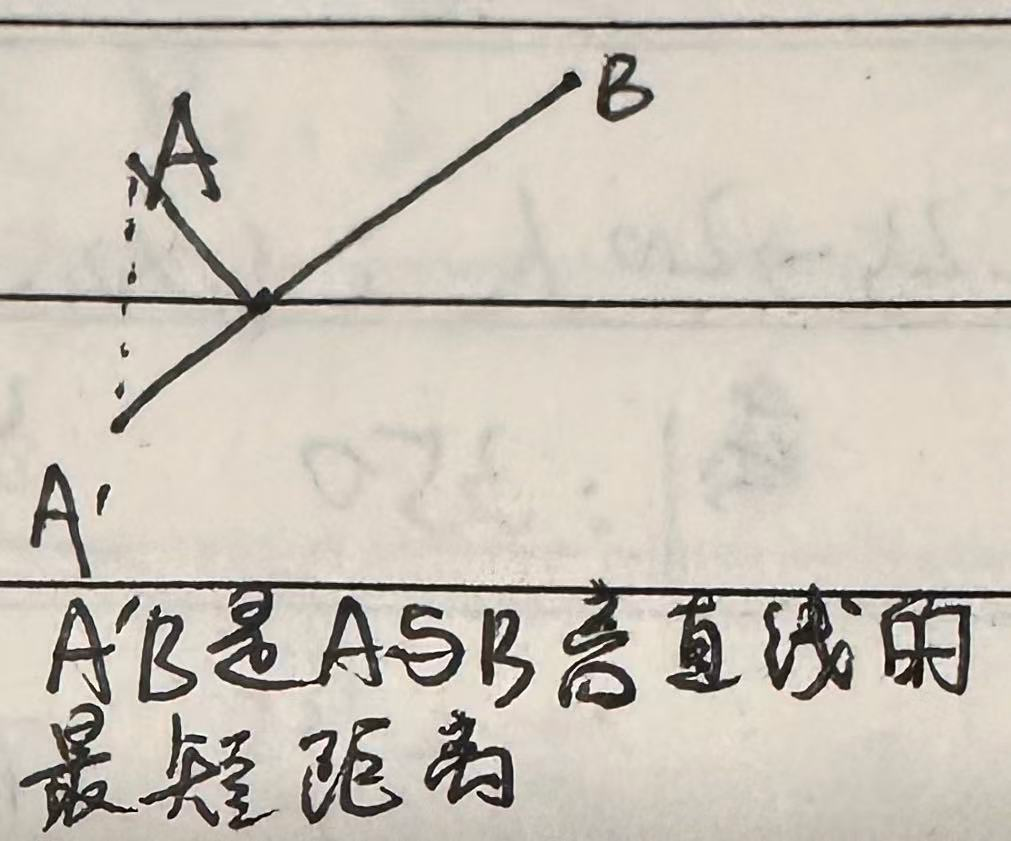 A
B
A'
A'B是A与B离直线的
最短距离